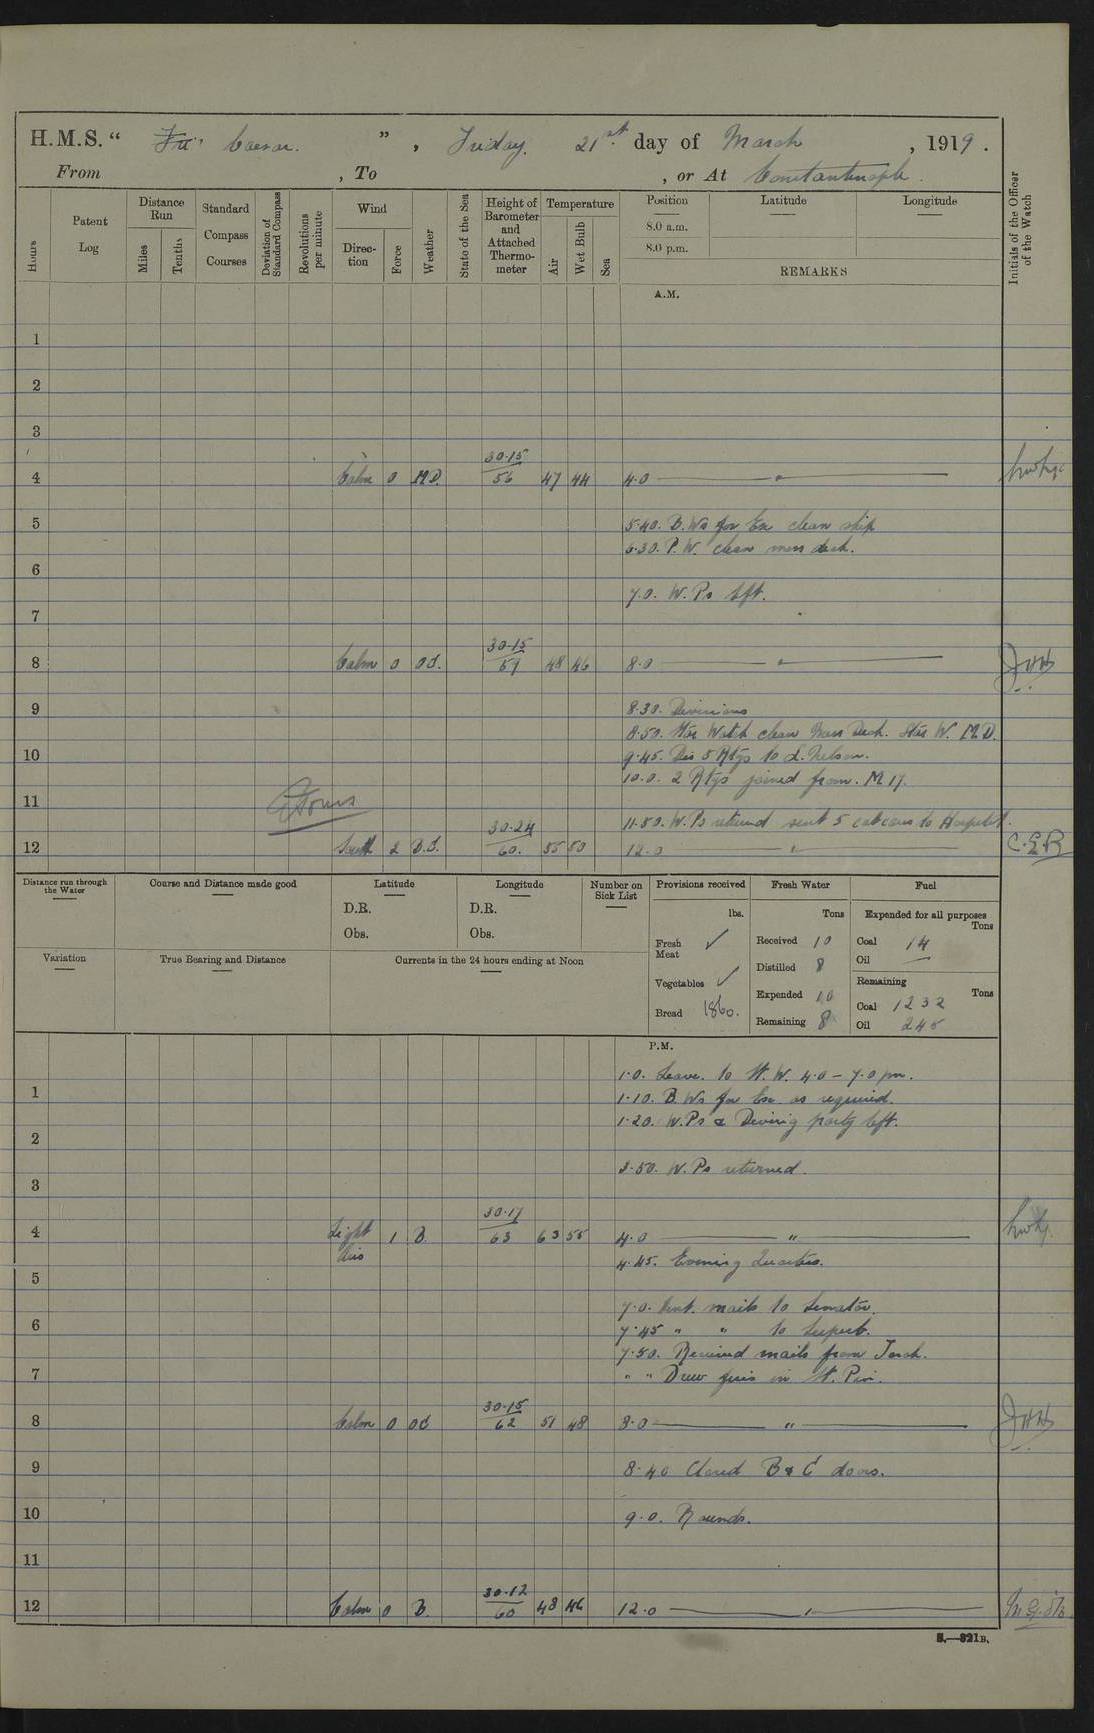 H.M.S. “ Caesar. ” , Friday. 21st day of March , 1919 .
From , To , or At Constantinople .
Hours
Patent Log
Distance Run
Miles
Tenths
Standard Compass Courses
Deviation of Standard Compass
Revolutions per minute
Wind
Direction
Force
Weather
State of the Sea
Height of Barometer and Attached Thermometer
Temperature
Air
Wet Bulb
Sea
Position
8.0 a.m.
8.0 p.m.
Latitude
Longitude
REMARKS
Initials of the Officer of the Watch
A.M.
1
2
3
4 Calm 0 M.D. 30.15/56 47 44 4.0 "
5
5.40. B.Ws for Ex clean ship
6.30. P.W. clean mess deck.
6
7.0. W.Ps left.
7
8 Calm 0 OC. 30.15/59 48 46 8.0 "
9
8.30. Divisions
8.50. Watch clean Mess Deck. W. M.D.
9.45. Dis 5 Rtgs to L. Nelson.
10
10.0. 2 Rtgs joined from. M 17.
11
11.50. W.Ps returned sent 5 cot cases to Hospital.
12 South 2 B.C. 30.24/60. 55 50 12.0 "
C.E.B
Distance run through the Water
Course and Distance made good
Latitude
D.R.
Obs.
Longitude
D.R.
Obs.
Number on Sick List
Provisions received
lbs.
Fresh Meat ✓
Vegetables ✓
Bread 1860.
Fresh Water
Tons
Received 10
Distilled 8
Expended 10
Remaining 8
Fuel
Expended for all purposes
Tons
Coal 14
Oil —
Remaining
Tons
Coal 1232
Oil 245
Variation
True Bearing and Distance
Currents in the 24 hours ending at Noon
P.M.
1.0. Leave. to W. 4.0 – 7.0 pm.
1
1.10. B.Ws for Ex. as required.
1.20. W.Ps & Diving party left.
2
3.50. W.Ps returned.
3
4 Light Airs 1 B. 30.17/63 63 55 4.0 "
4.45. Evening Quarters.
5
7.0. Sent. mails to Senator.
6
7.45 " " to Superb.
7.50. Received mails from Torch.
7
" " Drew fires in Pin.
8 Calm 0 OC 30.15/62 51 48 8.0 "
9
8.40 Closed B & C doors.
10
9.0. Rounds.
11
12 Calm 0 B. 30.12/60 48 46 12.0 "
S.—321B.